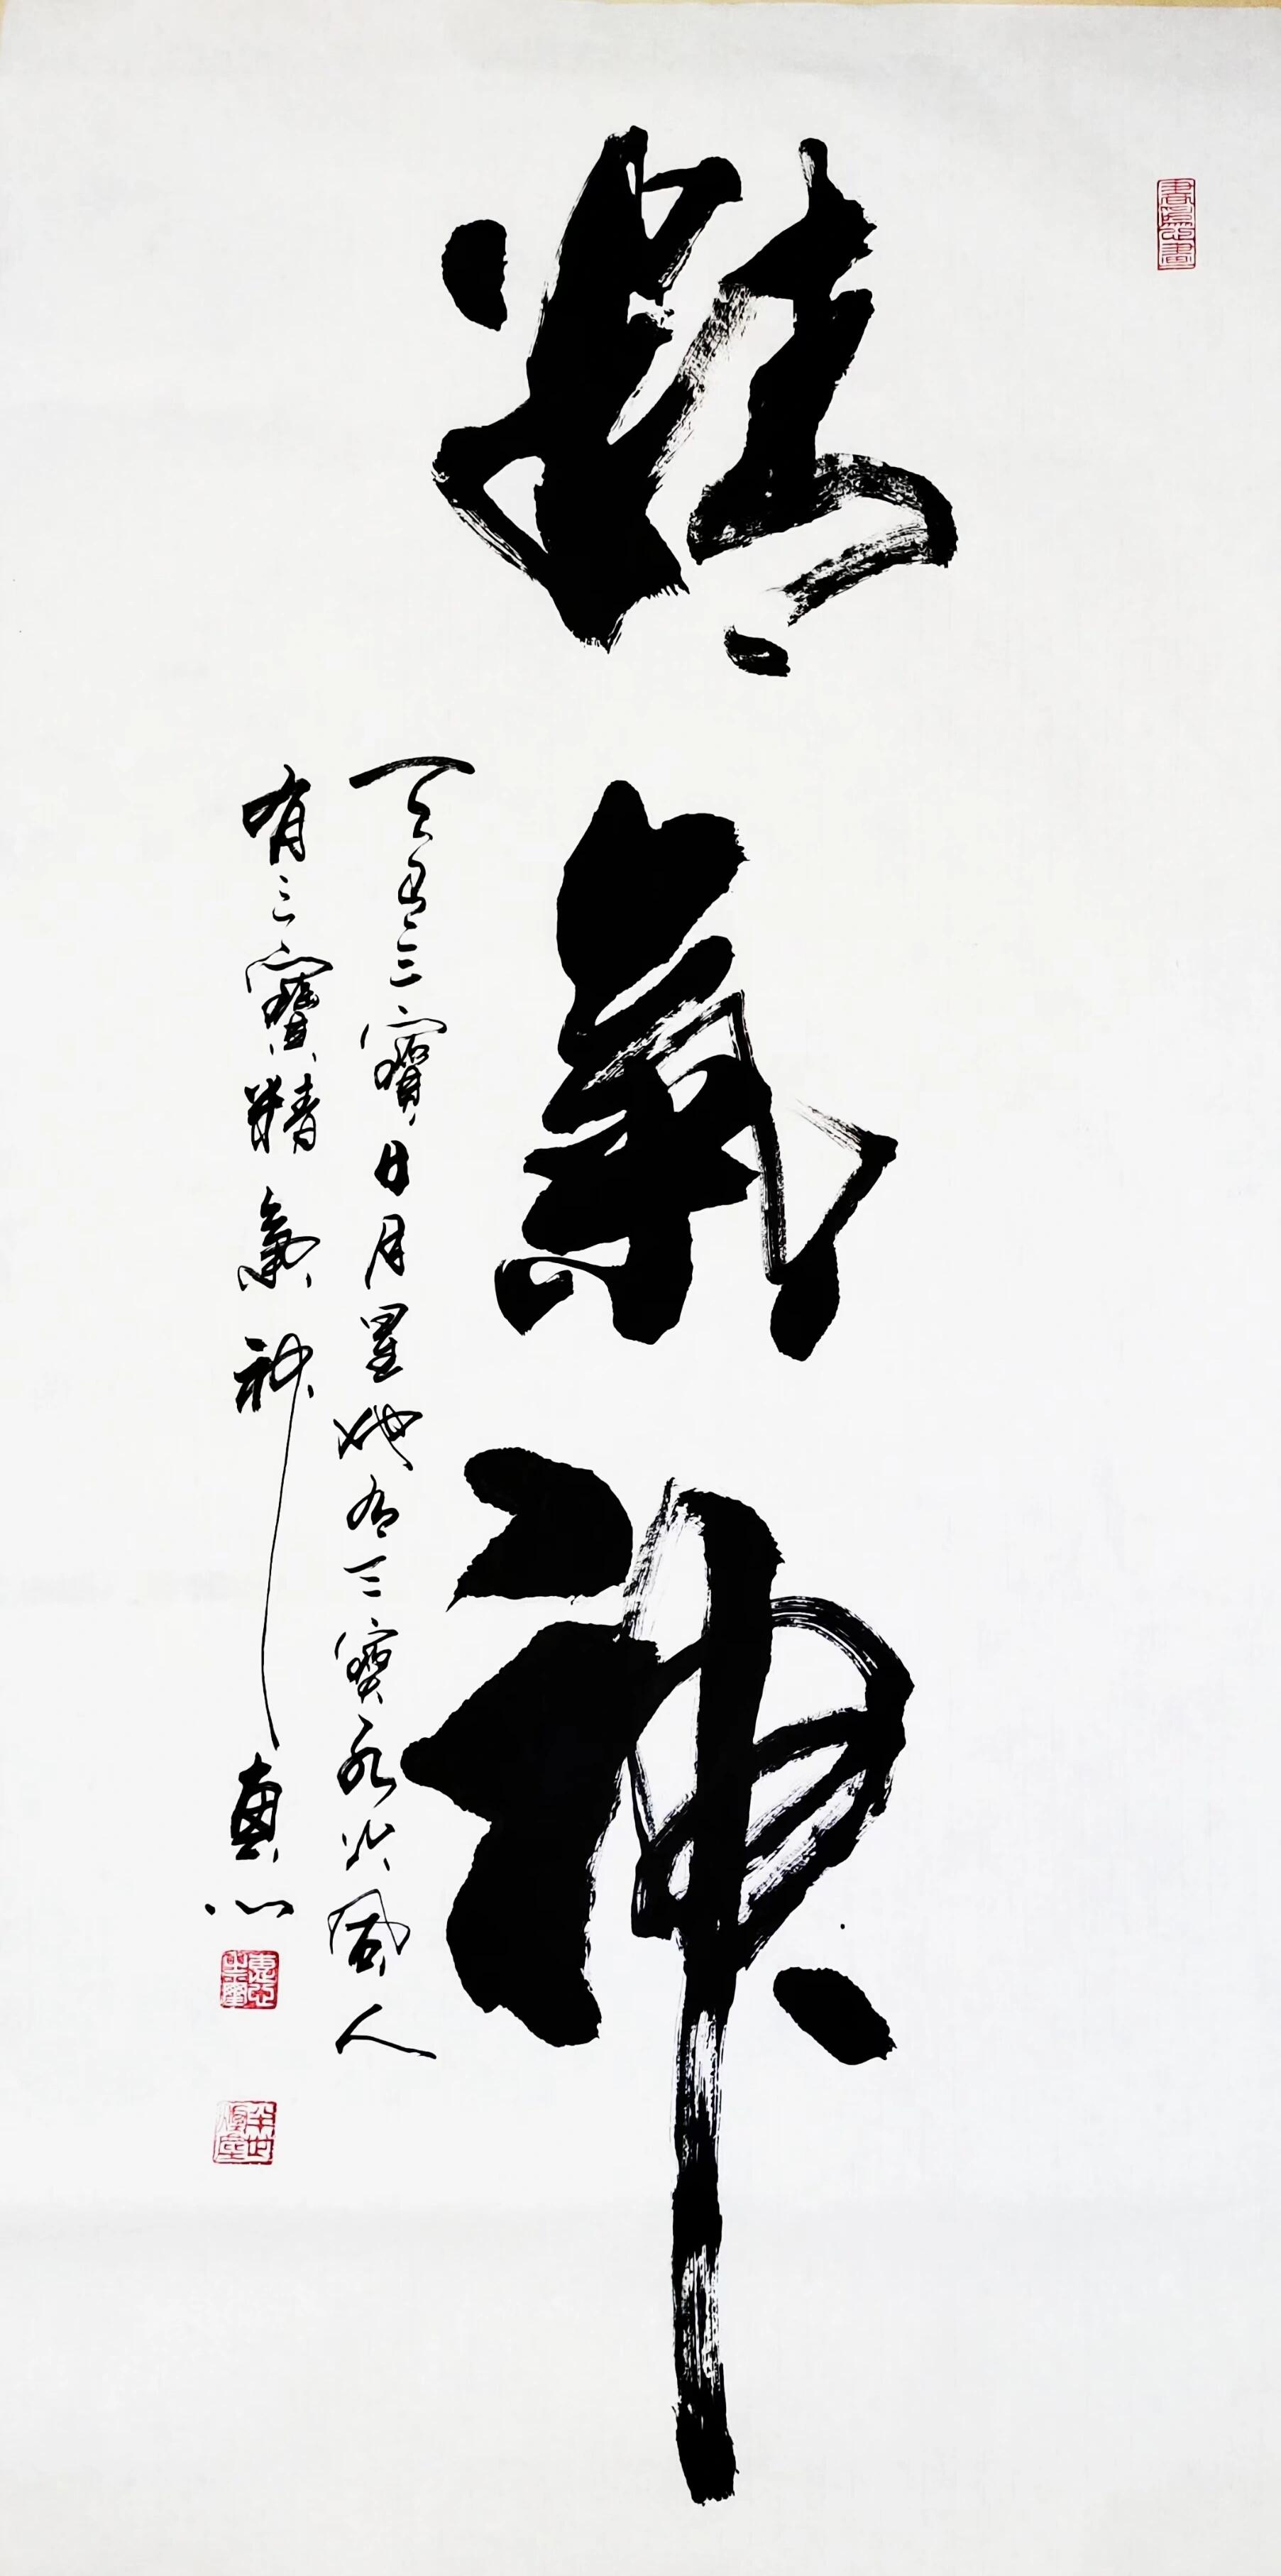 精氣神
天有三寶日月星地有三寶水火風人
有三寶精氣神